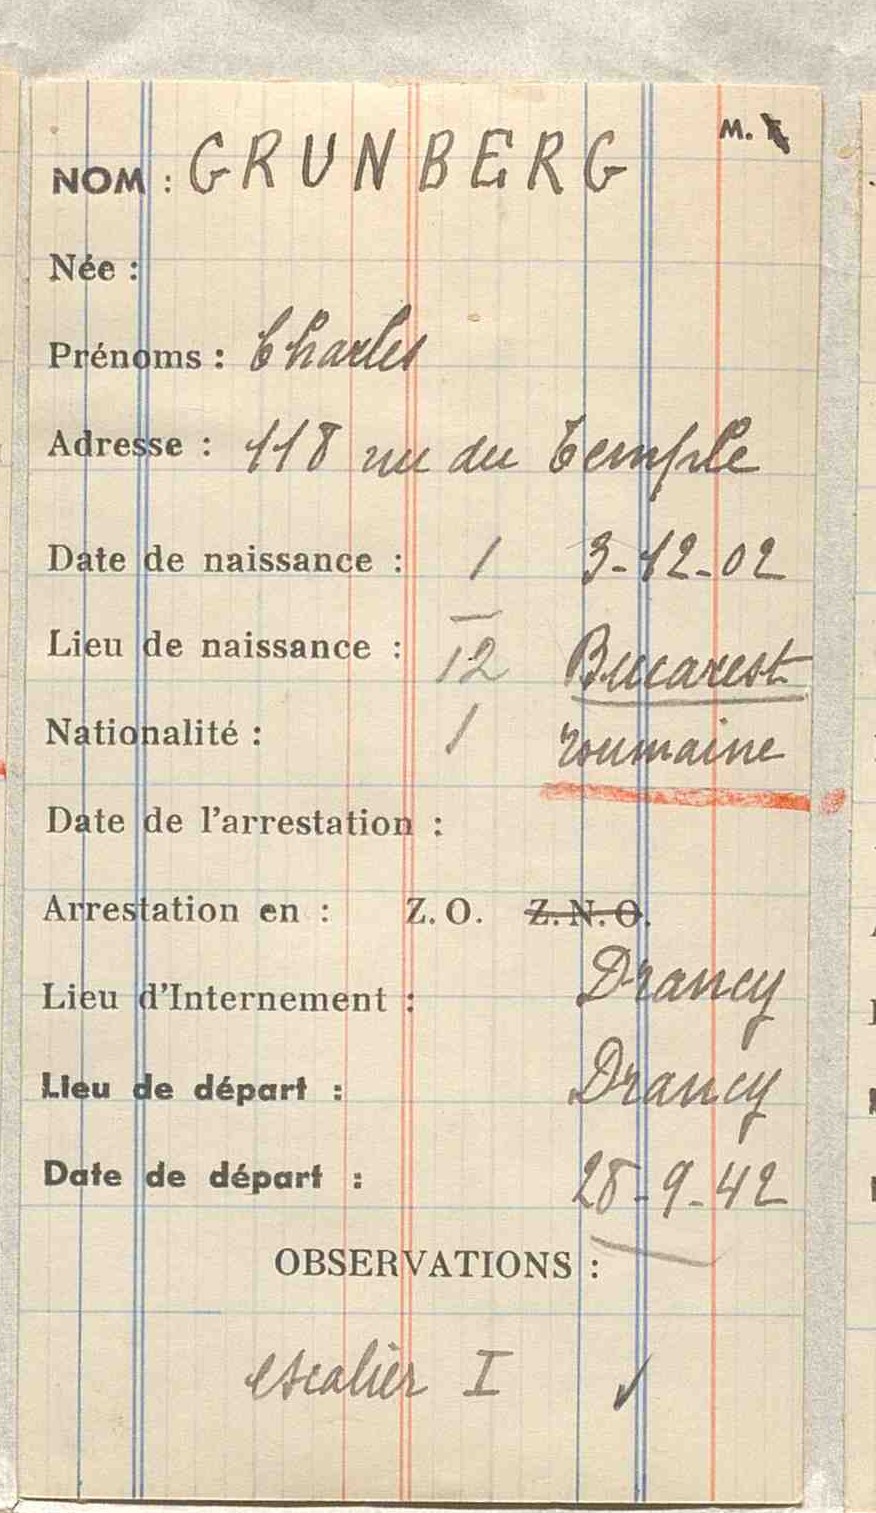 M.
NOM : GRUNBERG
Née :
Prénoms : Charles
Adresse : 118 rue du Temple
Date de naissance : 1 3-12-02
Lieu de naissance : 12 Bucarest
Nationalité : 1 roumaine
Date de l'arrestation :
Arrestation en : Z.O. Z.N.O.
Lieu d'Internement : Drancy
Lieu de départ : Drancy
Date de départ : 28-9-42
OBSERVATIONS :
escalier I